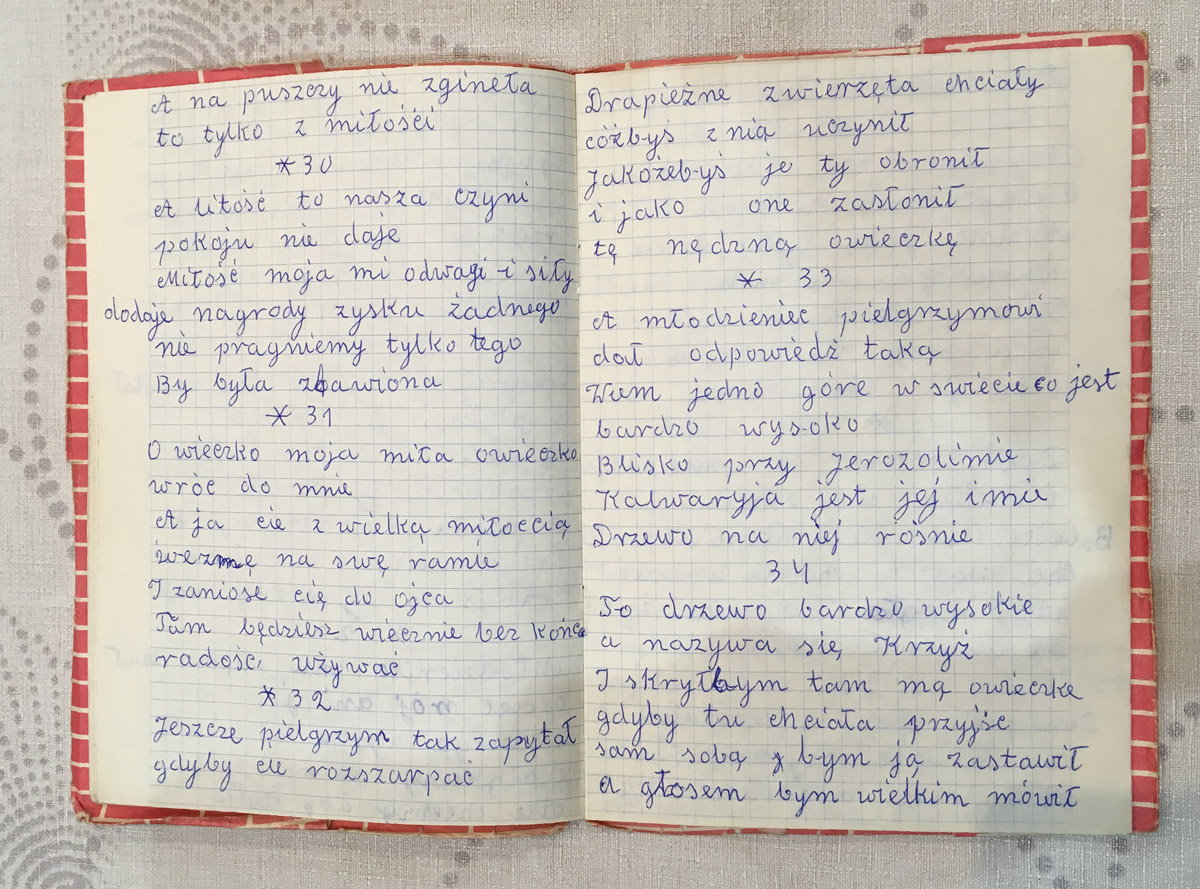 A na puszczy nie zgineła
to tylko z miłośći
* 30
A litość to nasza czyni
pokoju nie daje
Miłość moja mi odwagi i siły
dodaje nagrody zysku żadnego
nie pragniemy tylko tego
By była zbawiona
* 31
O wieczko moja miła owieczko
wróć do mnie
A ja cie z wielką miłoccią
wezmę na swę ramie
I zaniose cię do ojca
Tam będziesz wiecznie bez końca
radość, używać
* 32
Jeszczę pielgrzym tak zapytał
gdyby cie rozszarpać
Drapieżne zwierzęta chciały
cóżbyś z nią uczynił
Jakożebyś je ty obronił
i jako one zasłonił
tę nędzną owieczkę
* 33
A młodzieniec pielgrzymowi
dał odpowiedź taką
Wiem jedno góre w swiecie co jest
bardzo wysoko
Blisko przy Jerozolimie
Kalwaryja jest jej imie
Drzewo na niej rośnie
34
To drzewo bardzo wysokie
a nazywa się Krzyż
I skryłbym tam mą owieczke
gdyby tu chciała przyjść
sam sobą bym ją zastawił
a głosem bym wielkim mówił